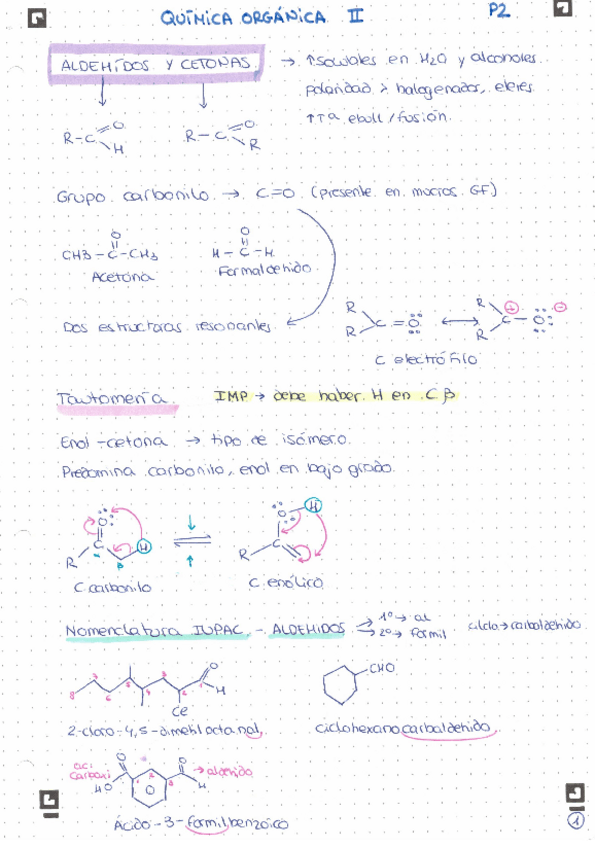 QUÍMICA ORGÁNICA II P2
ALDEHÍDOS Y CETONAS → ↑solubles en H2O y alcoholes.
polaridad > halogenados, éteres
↑Tª ebull / fusión.
R-C=O H R-C=O R
Grupo carbonilo → C=O (presente en muchos GF)
O O
CH3-C-CH3 H-C-H
Acetona Formaldehido
Dos estructuras resonantes R R C=O ↔ R R C-O + -
C electrófilo
Tautomería IMP → debe haber H en C β
Enol-cetona → tipo de isómero.
Predomina carbonilo, enol en bajo grado.
O H O H
C C
R β R
C. carbonilo C. enólico
Nomenclatura IUPAC - ALDEHIDOS → 1º → al
→ 2º → formil ciclo → carbaldehido
O H CHO
8 6 5 4 2
Cl
2-cloro-4,5-dimetiloctanal ciclohexanocarbaldehido
aci carboxi O O → aldehido
HO H
Ácido-3-formilbenzoico
1